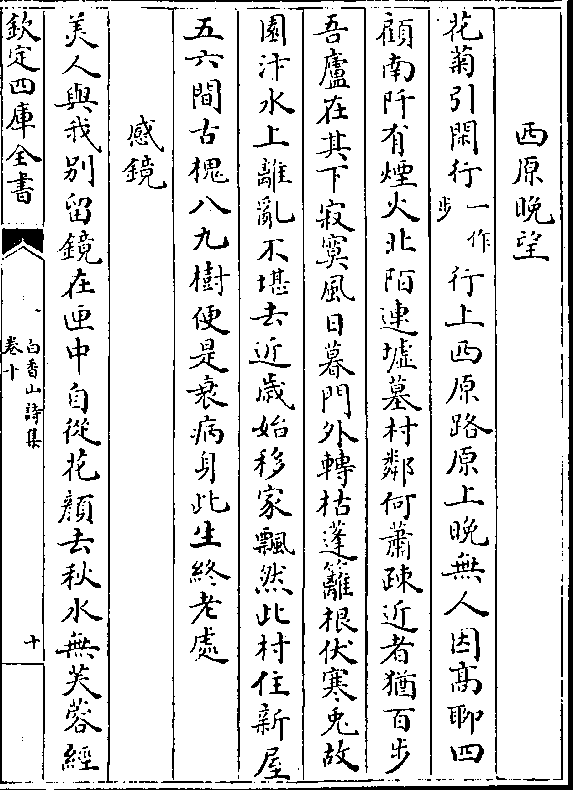 西原晚望
花菊引閑行一作步行上西原路原上晚無人因髙聊四
顧南阡有煙火北陌連墟墓村鄰何蕭疎近者猶百步
吾廬在其下寂寞風日暮門外轉枯蓬籬根伏寒兎故
園汴水上離亂不堪去近歳始移家飄然此村住新屋
五六間古槐八九樹便是衰病身此生終老處
感鏡
美人與我别留鏡在匣中自從花顔去秋水無芙蓉經
欽定四庫全書
白香山詩集
卷十
十